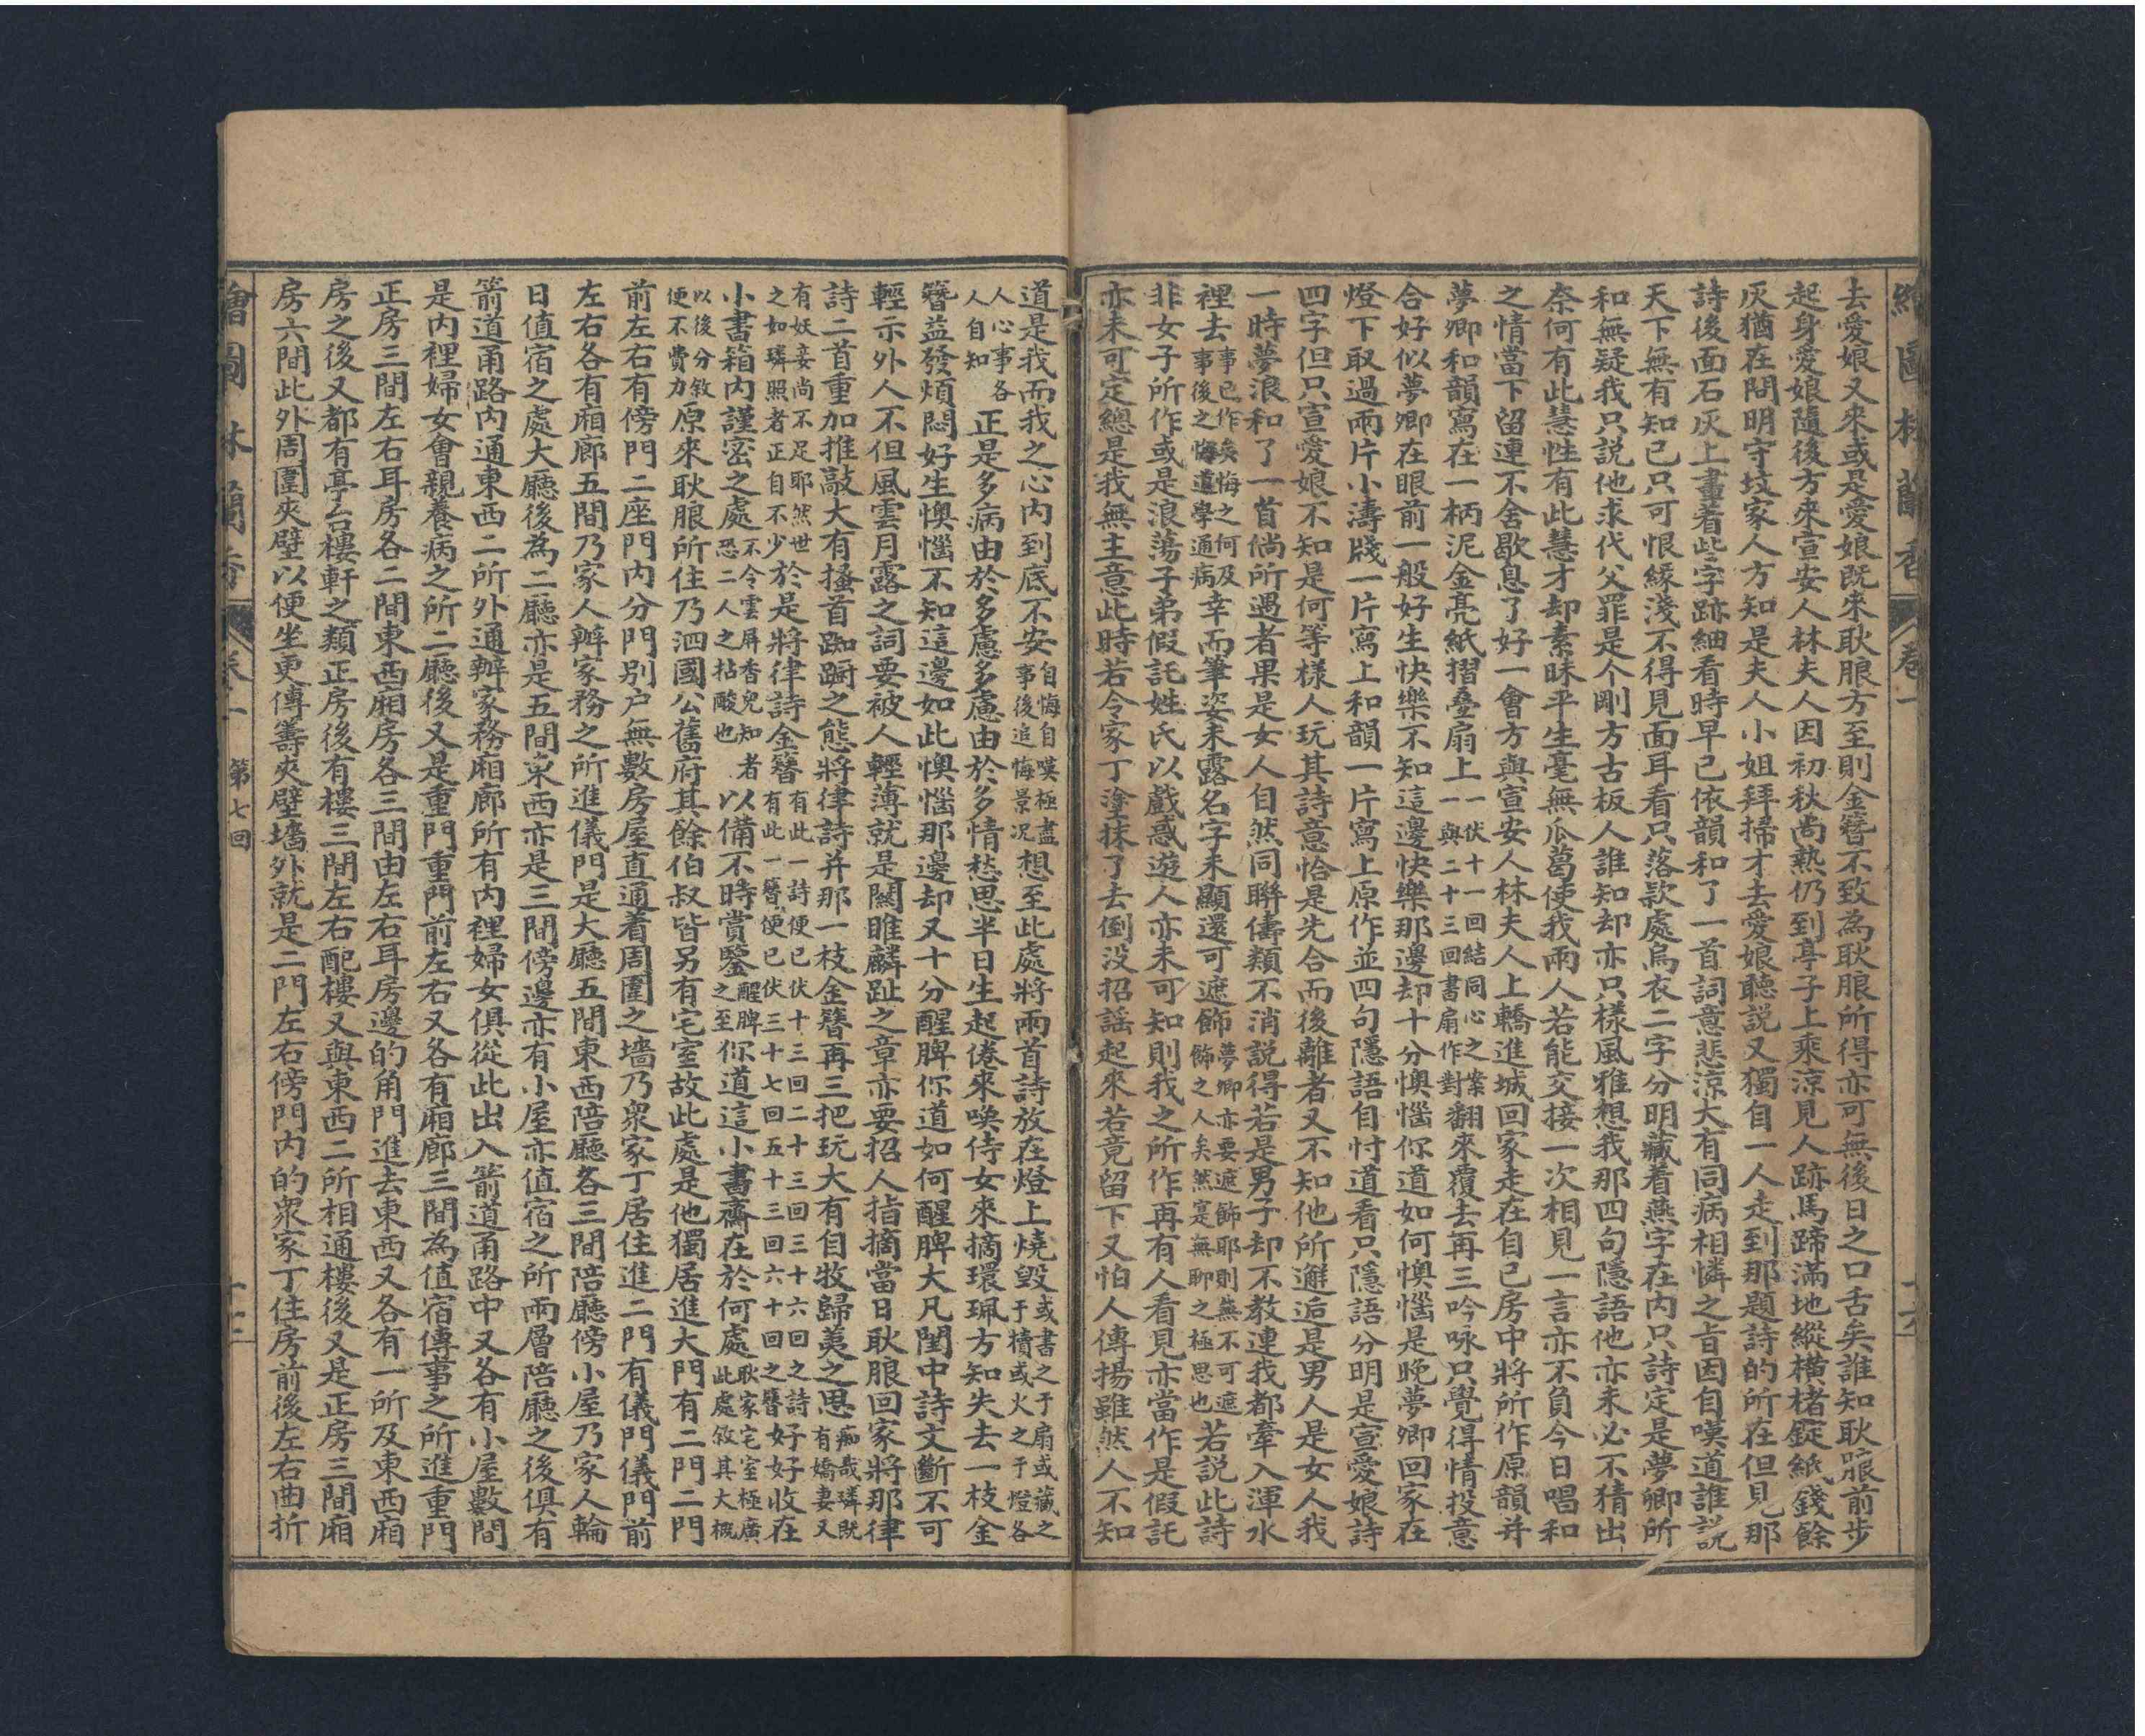 繪圖林蘭香 卷一
去愛娘又來或是愛娘既來耿朖方至則金簪不致為耿朖所得亦可無後日之口舌矣誰知耿朖前步
起身愛娘隨後方來宣安人林夫人因初秋尚熱仍到亭子上乘涼見人跡馬蹄滿地縱橫楮錠紙錢餘
灰猶在問明守坟家人方知是夫人小姐拜掃才去愛娘聽説又獨自一人走到那題詩的所在但見那
詩後面石灰上畫着些字跡細看時早已依韻和了一首詞意悲涼大有同病相憐之旨因自嘆道誰説
天下無有知已只可恨緣淺不得見面耳看只落款處烏衣二字分明藏着燕字在內只詩定是夢卿所
和無疑我只説他求代父罪是个剛方古板人誰知却亦只樣風雅想我那四句隱語他亦未必不猜出
奈何有此慧性有此慧才却素昧平生毫無瓜葛使我兩人若能交接一次相見一言亦不負今日唱和
之情當下留連不舍歇息了好一會方與宣安人林夫人上轎進城回家走在自已房中將所作原韻并
夢卿和韻寫在一柄泥金亮紙摺疊扇上一伏十一回結同心之案一與二十三回書扇作對翻來覆去再三吟咏只覺得情投意
合好似夢卿在眼前一般好生快樂不知這邊快樂那邊却十分懊惱你道如何懊惱是晚夢卿回家在
燈下取過兩片小濤牋一片寫上和韻一片寫上原作並四句隱語自忖道看只隱語分明是宣愛娘詩
四字但只宣愛娘不知是何等樣人玩其詩意恰是先合而後離者又不知他所邂逅是男人是女人我
一時夢浪和了一首倘所遇者果是女人自然同聯儔類不消説得若是男子却不教連我都牽入渾水
裡去事已作矣悔之何及事後之悔道學通病幸而筆姿未露名字未顯還可遮飾夢卿亦要遮飾耶則無不可遮飾之人矣然寔無聊之極思也若説此詩
非女子所作或是浪蕩子弟假託姓氏以戲惑遊人亦未可知則我之所作再有人看見亦當作是假託
亦未可定總是我無主意此時若令家丁塗抹了去倒没招謡起來若竟留下又怕人傳揚雖然人不知
道是我而我之心內到底不安自悔自嘆極盡事後追悔景况想至此處將兩首詩放在燈上燒毁或書之于扇或藏之于犢或火之于燈各
人心事各人自知正是多病由於多慮多慮由於多情愁思半日生起倦來喚侍女來摘環珮方知失去一枝金
簪益發煩悶好生懊惱不知這邊如此懊惱那邊却又十分醒脾你道如何醒脾大凡閨中詩文斷不可
輕示外人不但風雲月露之詞要被人輕薄就是關雎麟趾之章亦要招人指摘當日耿朖回家將那律
詩二首重加推敲大有搔首踟躕之態將律詩并那一枝金簪再三把玩大有自牧歸荑之思痴哉璘旣有嬌妻又
有妖妾尚不足耶然世之如璘照者正自不少於是將律詩金簪有此一詩便已伏十三回二十三回三十六回之詩有此一簪便已伏三十七回五十三回六十回之簪好好收在
小書箱內謹密之處不令雲屏香兒知者恐二人之拈酸也以備不時賞鑒醒脾之至你道這小書齋在於何處耿家宅室極廣此處敘其大概
以後分敘便不費力原來耿朖所住乃泗國公舊府其餘伯叔皆另有宅室故此處是他獨居進大門有二門二門
前左右有傍門二座門內分門別户無數房屋直通着周圍之墻乃衆家丁居住進二門有儀門儀門前
左右各有廂廊五間乃家人辦家務之所進儀門是大廳五間東西陪廳各三間陪廳傍小屋乃家人輪
日值宿之處大廳後為二廳亦是五間東西亦是三間傍邊亦有小屋亦值宿之所兩層陪廳之後俱有
箭道甬路內通東西二所外通辦家務廂廊所有內裡婦女俱從此出入箭道甬路中又各有小屋數間
是內裡婦女會親養病之所二廳後又是重門重門前左右又各有廂廊三間為值宿傳事之所進重門
正房三間左右耳房各二間東西廂房各三間由左右耳房邊的角門進去東西又各有一所及東西廂
房之後又都有亭台樓軒之類正房後有樓三間左右配樓又與東西二所相通樓後又是正房三間廂
房六間此外周圍夾壁以便坐更傳籌夾壁墻外就是二門左右傍門內的衆家丁住房前後左右曲折
繪圖林蘭香 卷一 第七回 十三